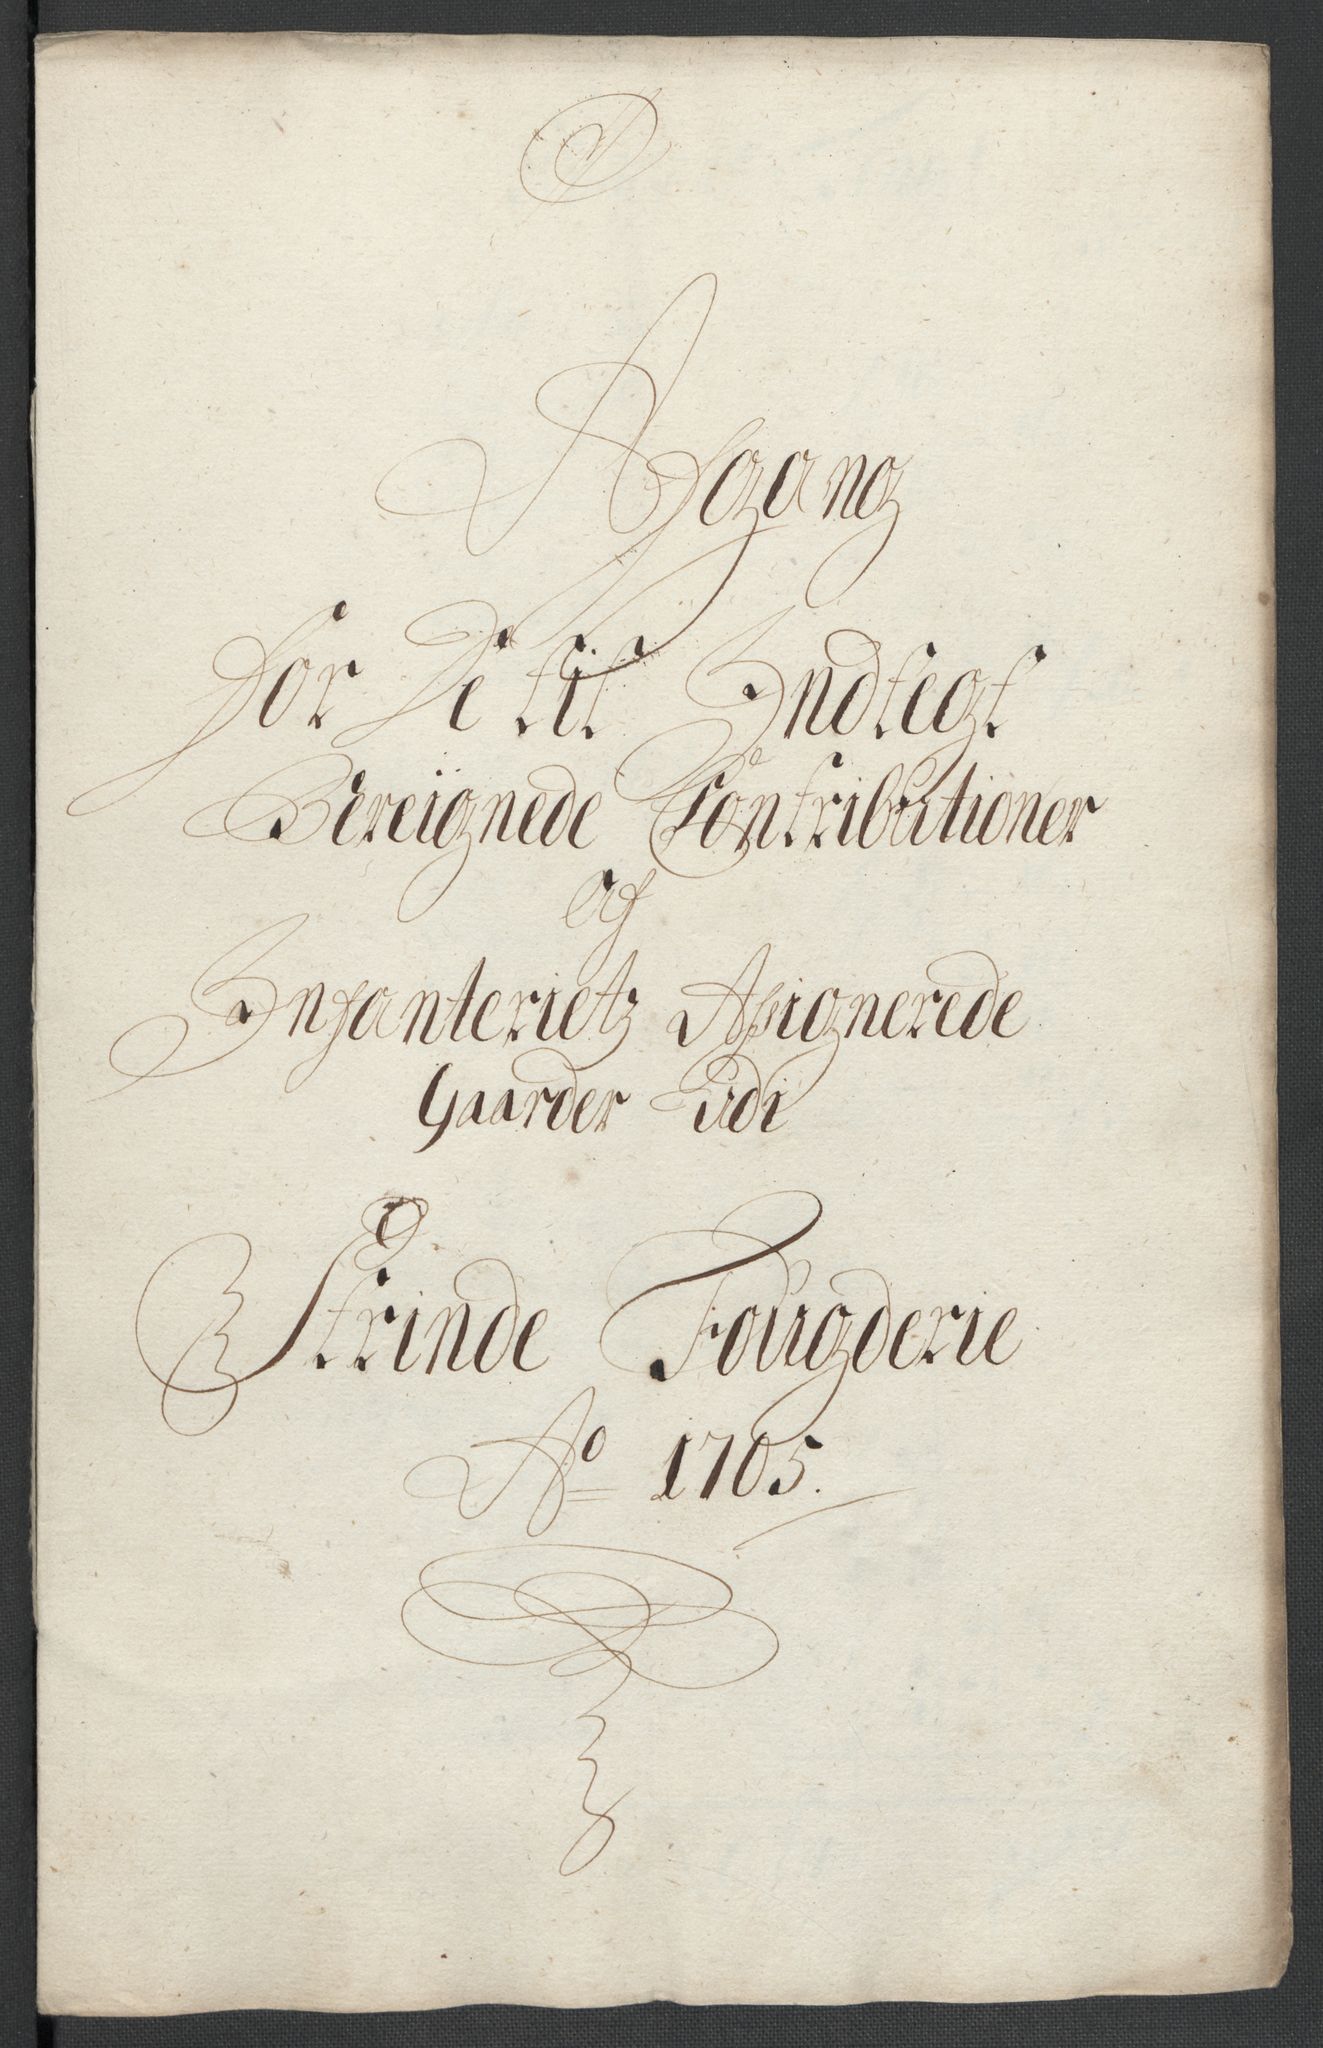 Afgang
for De til Indtegt
Bereignede Contributioner
af
Infanterietz Assignerede
Gaarder Udi
Strinde Fougderie
Ao 1705.